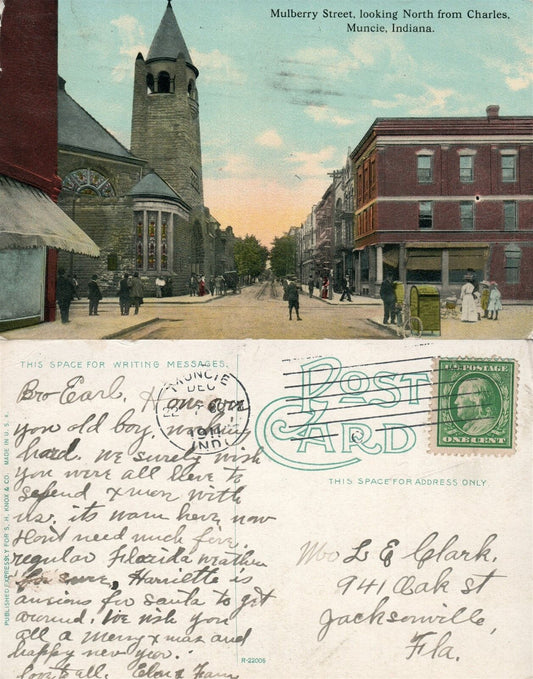 Mulberry Street, looking North from Charles,
Muncie, Indiana.
THIS SPACE FOR WRITING MESSAGES.
MUNCIE
DEC
22
1911
IND.
POST
CARD
U.S. POSTAGE
ONE CENT
THIS SPACE FOR ADDRESS ONLY
PUBLISHED EXPRESSLY FOR S. H. KNOX & CO. MADE IN U. S. A.
Bro Earl, How are
you old boy, working
hard. We surely wish
you were all here to
spend xmas with
us. its warm here now
dont need much fire.
regular Florida weather
for sure, Harriette is
anxious for santa to get
around. We wish you
all a Merry xmas and
happy new year.
love to all.
R-22006
L E Clark,
941 Oak st
Jacksonville,
Fla.